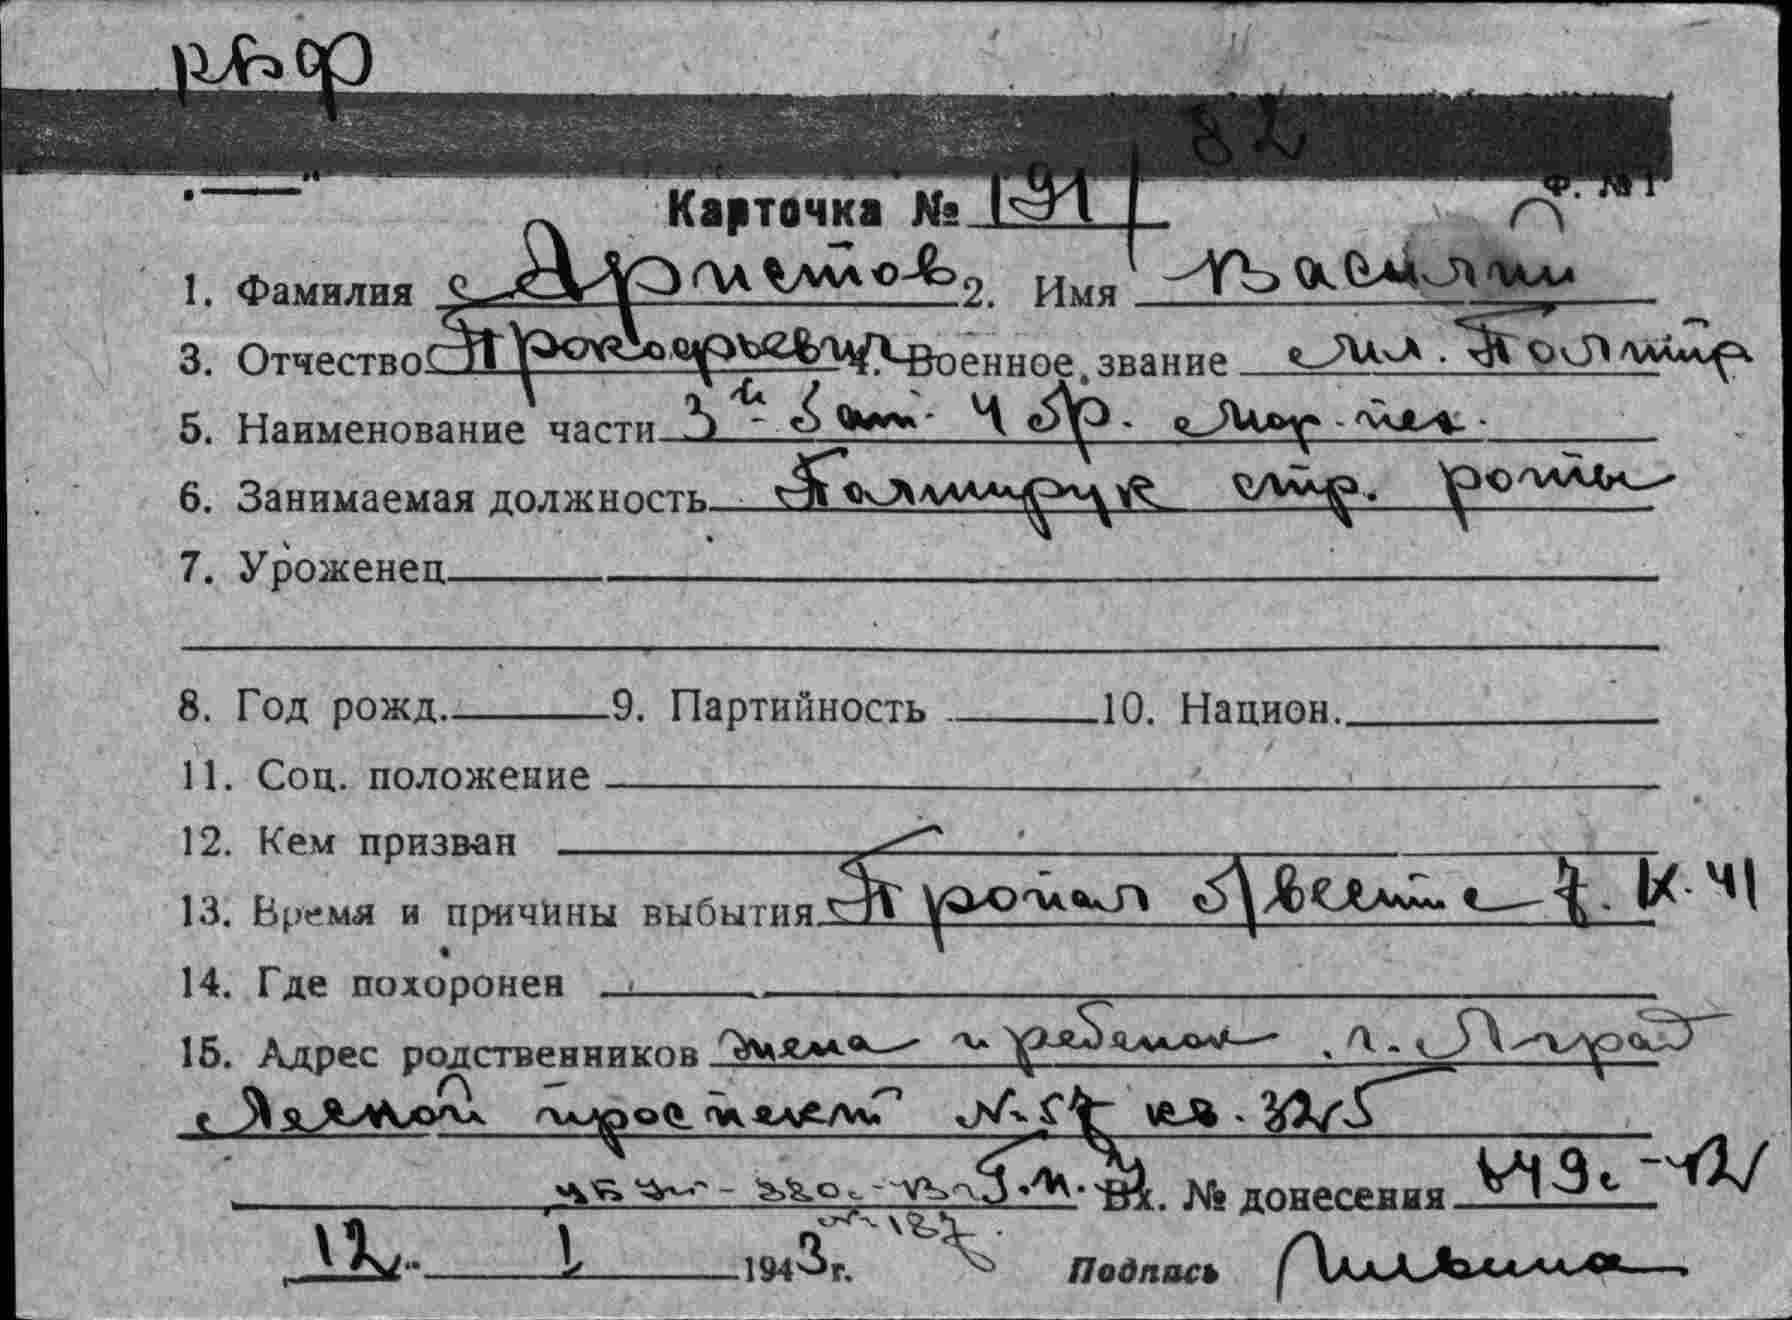 КБФ
82
Ф. № 1
Карточка № 191
1. Фамилия Аристов 2. Имя Василий
3. Отчество Прокофьевич 4. Военное звание Мл. Политр
5. Наименование части 3й бат. 4 бр. Мор. пех.
6. Занимаемая должность Политрук стр. роты
7. Уроженец
8. Год рожд. 9. Партийность 10. Национ.
11. Соц. положение
12. Кем призван
13. Время и причины выбытия Пропал без вести 7. IX. 41
14. Где похоронен
15. Адрес родственников жена и ребенок. г. Л-град
Лесной проспект N. 57 кв. 325
Вх. № донесения 649с
12 I 1943 г. Подпись